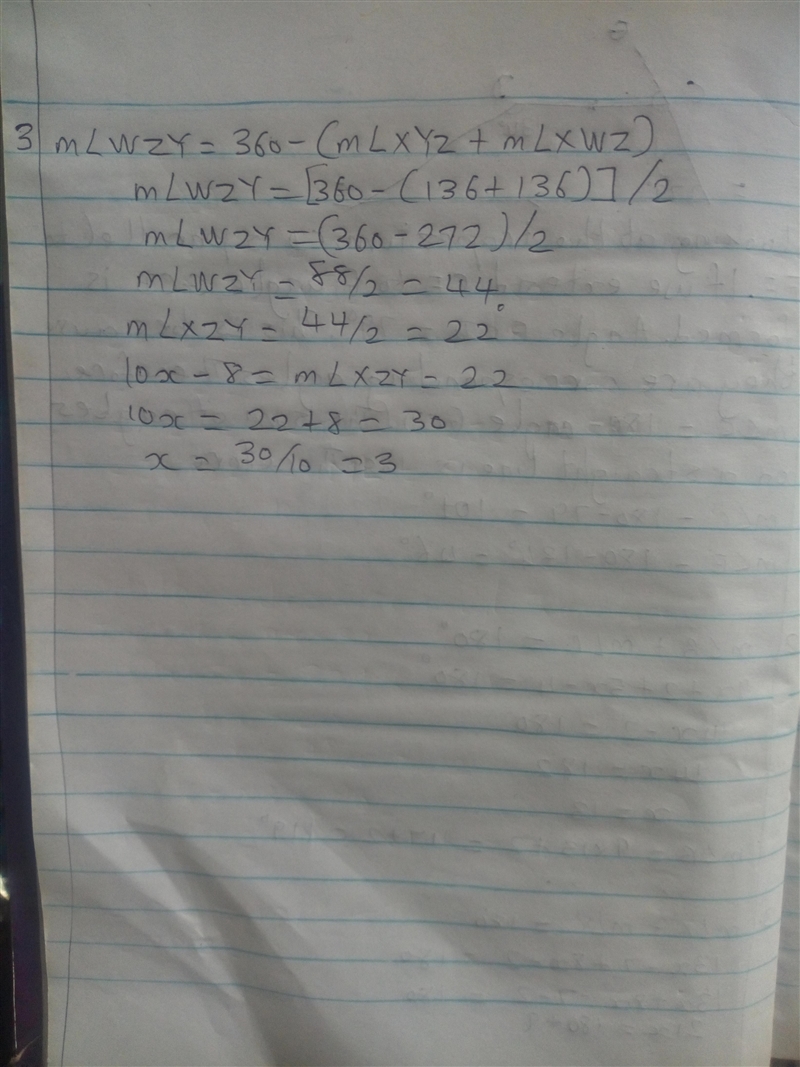 3 m∠WZY = 360 - (m∠XYZ + m∠XWZ)
m∠WZY = [360 - (136 + 136)] /2
m∠WZY = (360 - 272)/2
m∠WZY = 88/2 = 44°
m∠XZY = 44/2 = 22
10x - 8 = m∠XZY = 22
10x = 22 + 8 = 30
x = 30/10 = 3